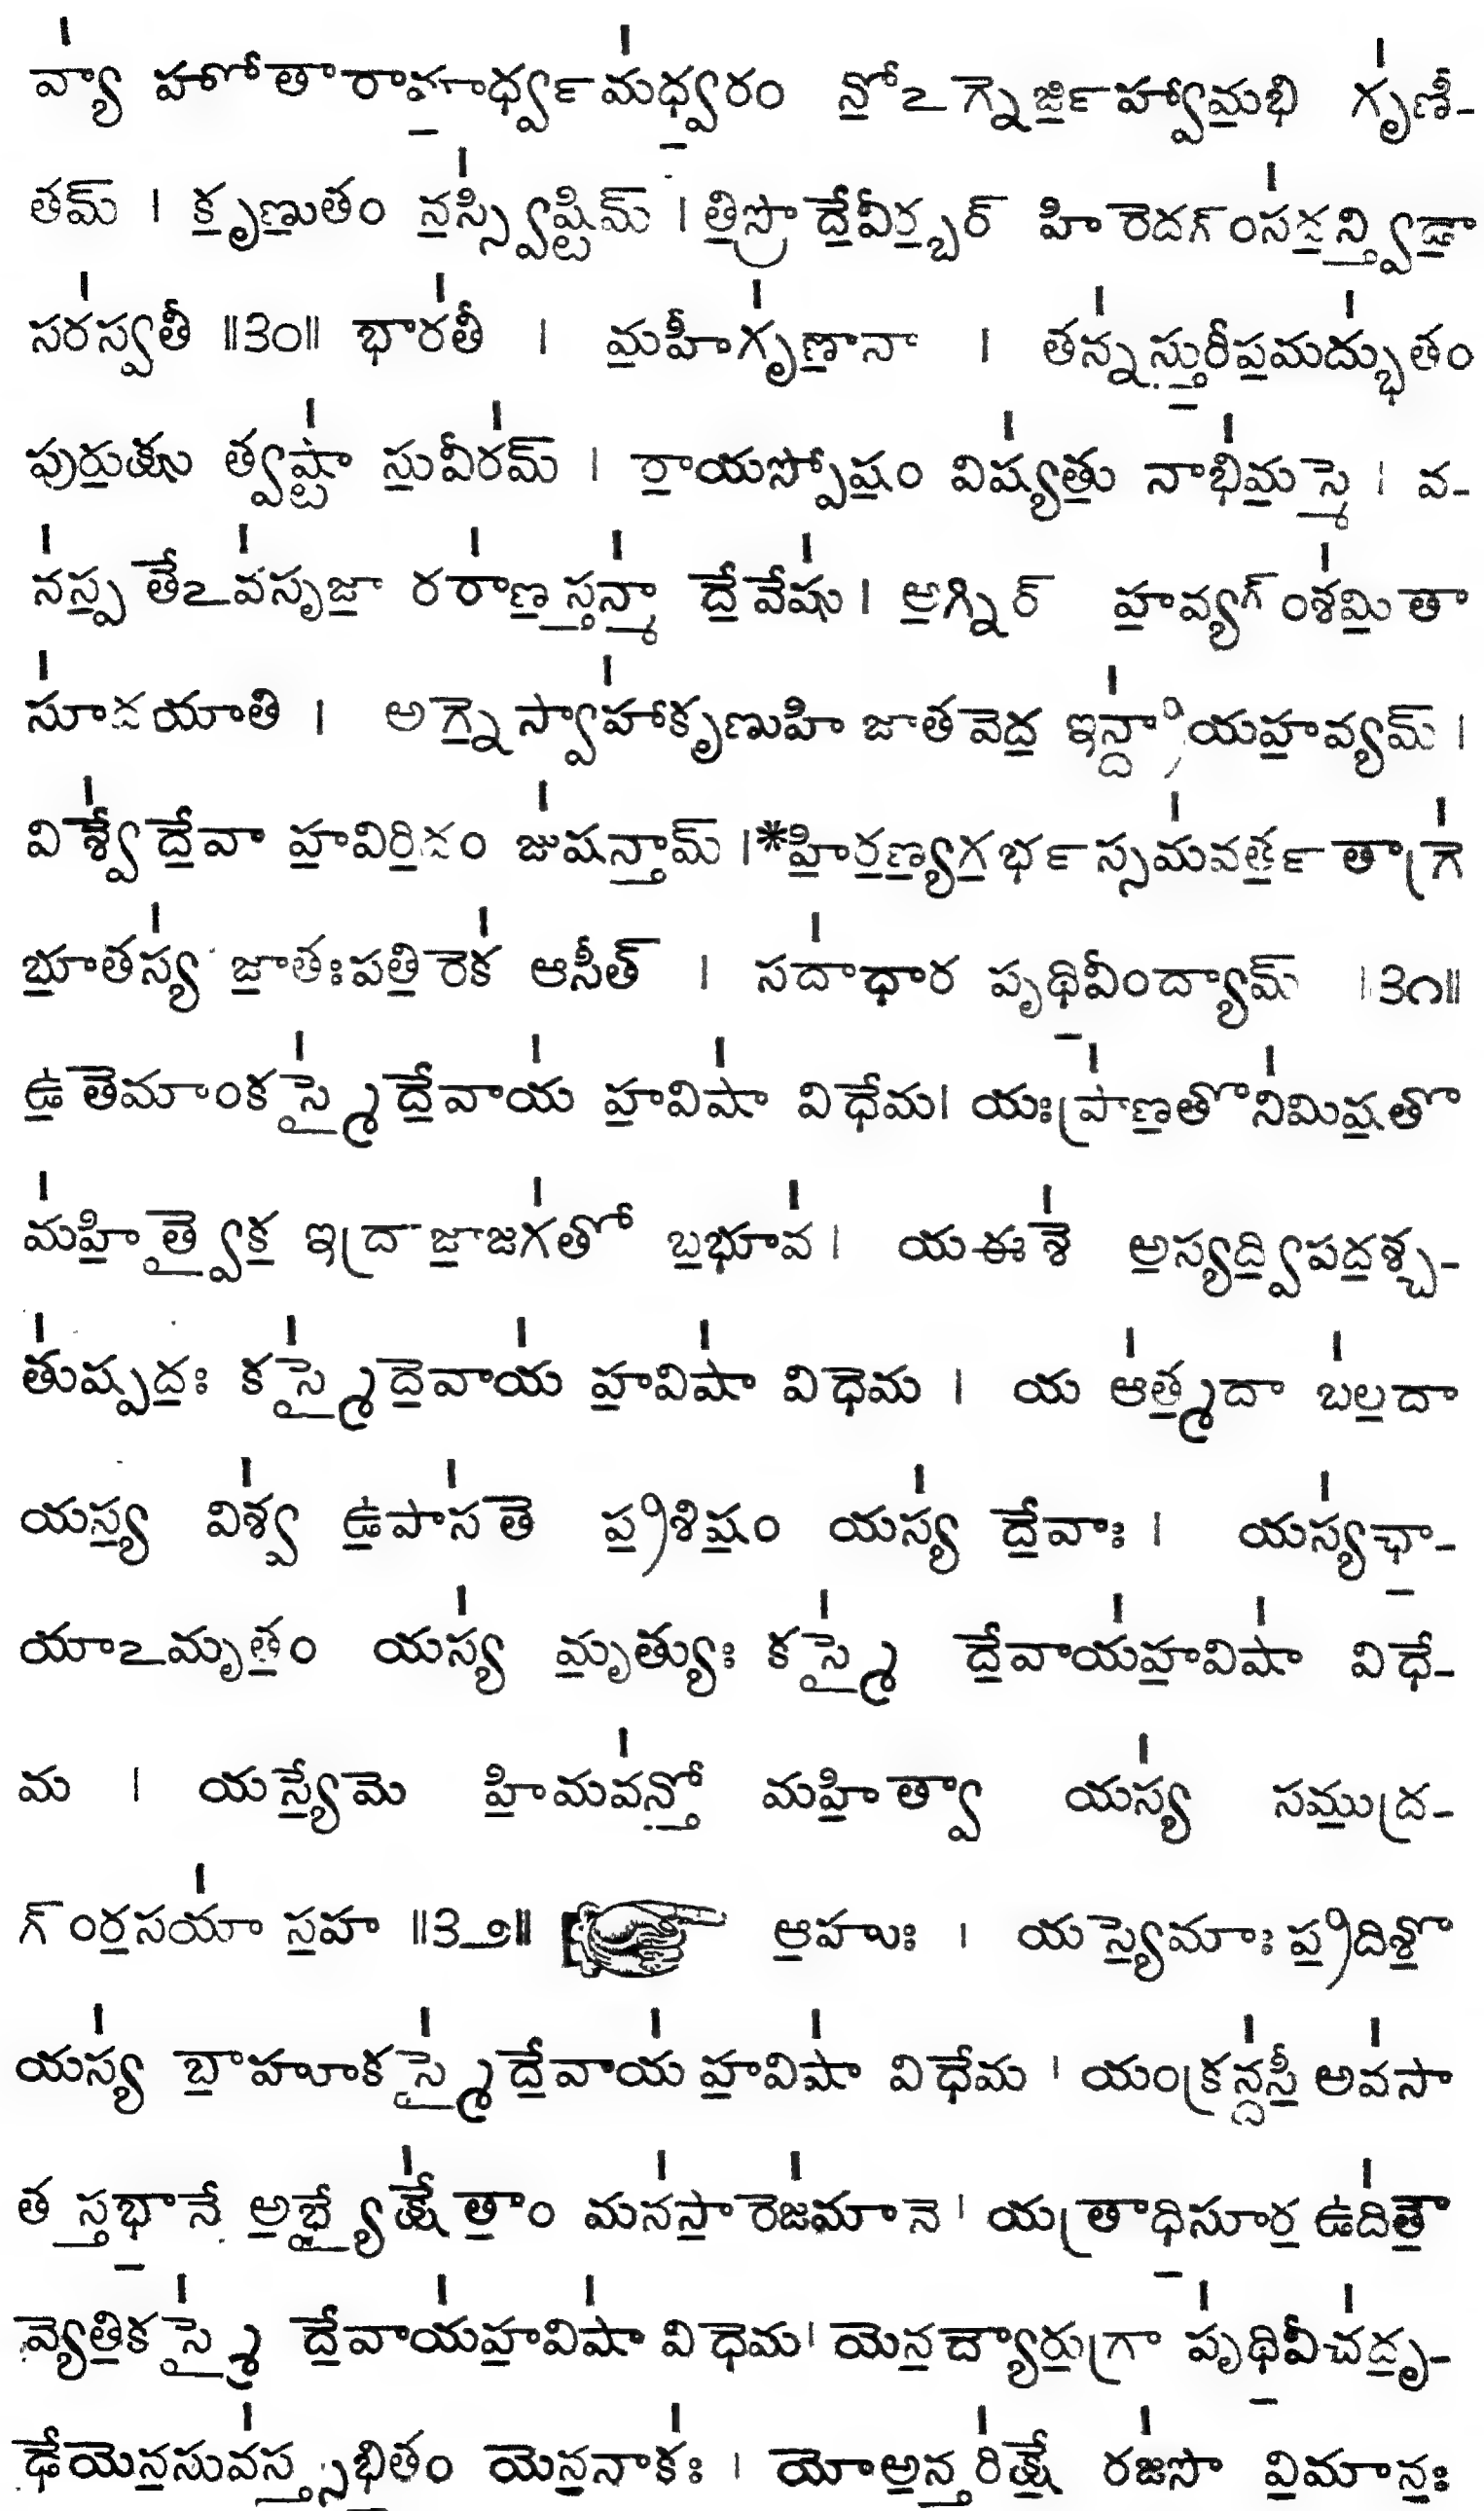 వ్యా॑ హోతారావూ॒ర్ధ్వమ॑ధ్వ॒రం నో॒ఽగ్నెర్జి॒హ్వామ॒భి గృ॑ణీ-
తమ్ । కృ॒ణు॒తం న॒స్స్వి॑ష్టిమ్ । తి॒స్రొ దే॒వీర్బ॒ర్ హి రెదగ్ంస॑ద॒న్త్విడా॒
సర॑స్వతీ ॥౩౦॥ భార॑తీ । మ॒హీగృ॑ణా॒నా । తన్న॑స్తు॒రీప॒మద్భు॑తం
పురు॒క్షు త్వష్టా॑ సు॒వీర॑మ్ । రా॒యస్పోష॒ం విష్య॑తు॒ నాభి॑మ॒స్మె । వ-
న॑స్ప॒తేఽవ॑సృజా॒ రరా॑ణ॒స్త్మనా॑ దే॒వేషు॑ । అ॒గ్నిర్ హ॒వ్యగ్ంశ॑మి॒తా
సూ॑దయాతి । అగ్నె॒స్వాహా॑కృణుహి జాతవెద॒ ఇన్ద్రా॑యహ॒వ్యమ్ ।
విశ్వే॑దే॒వా హ॒విరి॒దం జు॑షన్తామ్ ।*హి॒ర॒ణ్య॒గ॒ర్భస్సమ॑వర్త॒తాగ్రె॑
భూ॒తస్య॑ జా॒తఃపతి॒రెక॑ ఆసీత్ । సదా॑ధార పృథి॒వీంద్యామ్ ।౩౧॥
ఉ॒తెమాంకస్మై॑దే॒వాయ॑ హ॒విషా॑ విధేమ। యఃప్రా॑ణ॒తొని॑మిష॒తొ
మ॑హి॒త్వైక॒ ఇద్రాజా॒జగ॑తో బ॒భూవ॑ । యఈశె॑ అ॒స్యద్వి॒పద॒శ్చ-
తు॑ష్పద॒ః కస్మై॑దె॒వాయ॑ హ॒విషా॑ విధెమ । య ఆ॑త్మ॒దా బ॑ల॒దా
యస్య॒ విశ్వ॑ ఉ॒పాస॑తె ప్ర॒శిష॒ం యస్య॑ దే॒వాః । యస్య॑ఛా॒-
యాఽమృత॒ం యస్య॑ మృ॒త్యుః కస్మై॑ దే॒వాయ॑హ॒విషా॑ విధే-
మ । యస్యే॒మె హి॒మవ॑న్తో॒ మహి॒త్వా యస్య॑ సము॒ద్ర-
గ్ంర॒సయా॑ స॒హ ॥౩౨॥ ఆ॒హుః । యస్యె॒మాః ప్ర॒దిశొ॒
యస్య॑ బా॒హూకస్మై॑దే॒వాయ॑ హ॒విషా॑ విధేమ । యంక్రన్ద॑సీ॒ అవ॑సా
తస్తభా॒నే అ॒భ్యైక్షే॑తా॒ం మన॑సా॒ రెజ॑మానె । యత్రాధి॒సూర॒ ఉది॑తౌ॒
వ్యెతి॒కస్మై॑ దే॒వాయ॑హ॒విషా॑ విధెమ। యెన॒ద్యౌరు॒గ్రా పృ॑థి॒వీచ॑దృ॒-
ఢేయెన॒సువ॑స్త॒స్భి॒తం యెన॒నాక॑ః । యోఅ॒న్తరి॑క్షే రజ॑సొ వి॒మాన॒ః